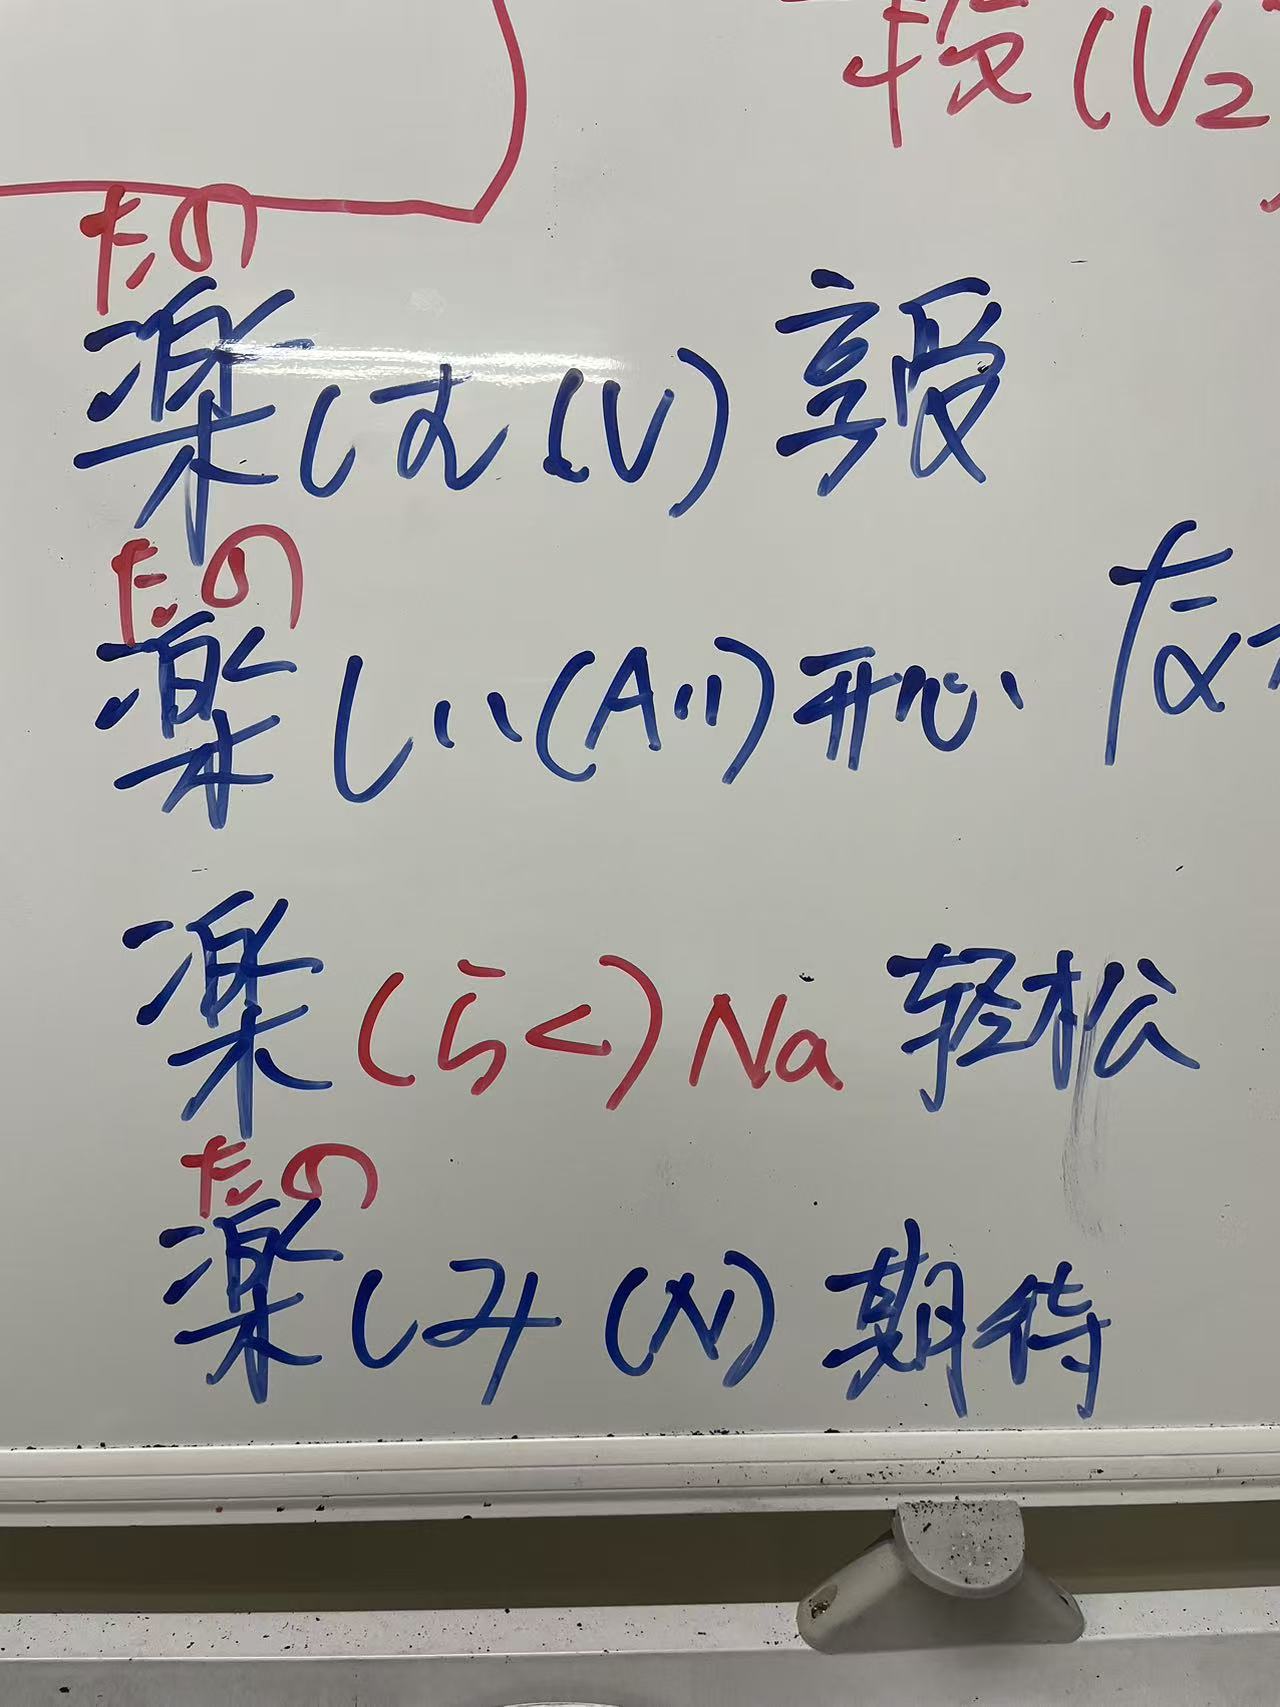 段(V2
たの
楽しむ(V) 享受
たの
楽しい(Aい)开心、友
楽(らく)Na 轻松
たの
楽しみ(N) 期待